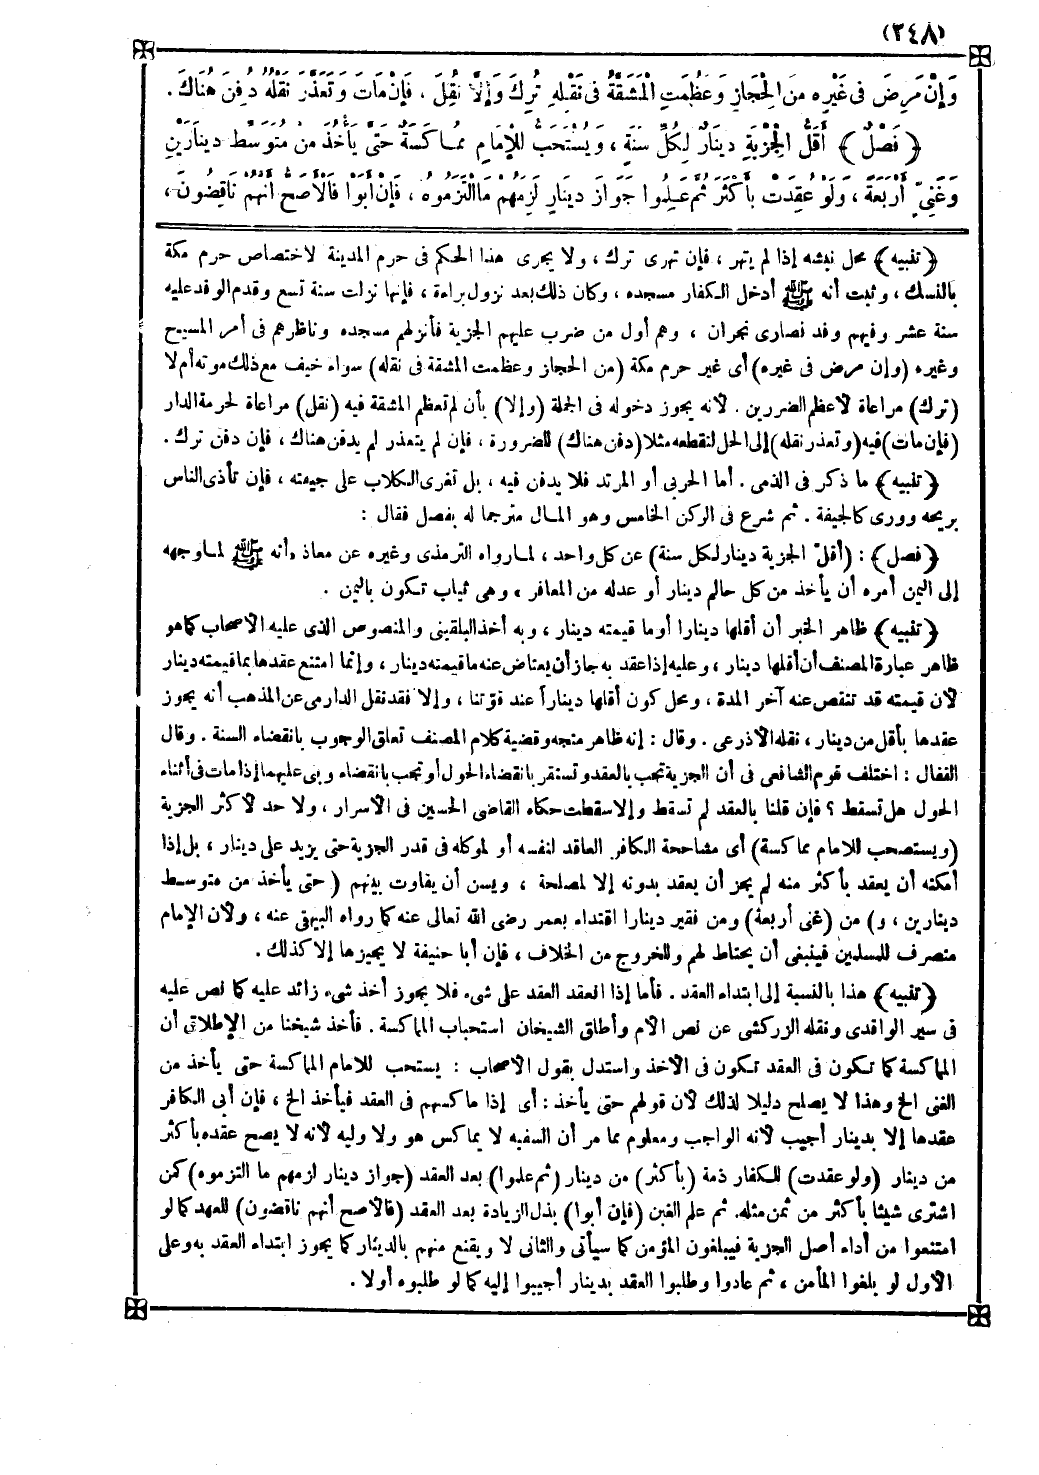 (٢٤٨)
وَإِنْ مَرِضَ فِى غَيْرِهِ مِنَ الْحِجَازِ وَعَظُمَتِ الْمَشَقَّةُ فِى نَقْلِهِ تُرِكَ وَإِلَّا نُقِلَ ، فَإِنْ مَاتَ وَتَعَذَّرَ نَقْلُهُ دُفِنَ هُنَاكَ .
﴿ فَصْلٌ ﴾ أَقَلُّ الْجِزْيَةِ دِينَارٌ لِكُلِّ سَنَةٍ ، وَيُسْتَحَبُّ لِلْإِمَامِ مُمَاكَسَةٌ حَتَّى يَأْخُذَ مِنْ مُتَوَسِّطٍ دِينَارَيْنِ
وَغَنِىٍّ أَرْبَعَةً ، وَلَوْ عُقِدَتْ بِأَكْثَرَ ثُمَّ عَلِمُوا جَوَازَ دِينَارٍ لَزِمَهُمْ مَا الْتَزَمُوهُ ، فَإِنْ أَبَوْا فَالْأَصَحُّ أَنَّهُمْ نَاقِضُونَ ،
﴿ تنبيه ﴾ محل نبشه إذا لم يتهر ، فإن تهرى ترك ، ولا يجرى هذا الحكم فى حرم المدينة لاختصاص حرم مكة
بالنسك ، وثبت أنه ﷺ أدخل الكفار مسجده ، وكان ذلك بعد نزول براءة ، فإنها نزلت سنة تسع وقدم الوفد عليه
سنة عشر وفيهم وفد نصارى نجران ، وهم أول من ضرب عليهم الجزية فأنزلهم مسجده وناظرهم فى أمر المسيح
وغيره (وإن مرض فى غيره) أى غير حرم مكة (من الحجاز وعظمت المشقة فى نقله) سواء خيف مع ذلك موته أم لا
(ترك) مراعاة لأعظم الضررين . لأنه يجوز دخوله فى الجملة (وإلا) بأن لم تعظم المشقة فيه (نقل) مراعاة لحرمة الدار
(فإن مات) فيه (وتعذر نقله) إلى الحل لتقطعه مثلا (دفن هناك) للضرورة ، فإن لم يتعذر لم يدفن هناك ، فإن دفن ترك .
﴿ تنبيه ﴾ ما ذكر فى الذمى . أما الحربى أو المرتد فلا يدفن فيه ، بل تغرى الكلاب على جيفته ، فإن تأذى الناس
بريحه وورى كالجيفة . ثم شرع فى الركن الخامس وهو المال مترجما له بفصل فقال :
﴿ فصل ﴾ : (أقلّ الجزية دينار لكل سنة) عن كل واحد ، لما رواه الترمذى وغيره عن معاذ «أنه ﷺ لما وجهه
إلى اليمن أمره أن يأخذ من كل حالم دينار أو عدله من المعافر ، وهى ثياب تكون باليمن .
﴿ تنبيه ﴾ ظاهر الخبر أن أقلها دينارا أو ما قيمته دينار ، وبه أخذ البلقينى والمنصوص الذى عليه الأصحاب كما هو
ظاهر عبارة المصنف أن أقلها دينار ، وعليه إذا عقد به جاز أن يعتاض عنه ما قيمته دينار ، وإنما امتنع عقدها بما قيمته دينار
لأن قيمته قد تنقص عنه آخر المدة ، ومحل كون أقلها ديناراً عند قوّتنا ، وإلا فقد نقل الدارمى عن المذهب أنه يجوز
عقدها بأقل من دينار ، نقله الأذرعى . وقال : إنه ظاهر متجه وقضية كلام المصنف تعلق الوجوب بانقضاء السنة . وقال
القفال : اختلف قوم الشافعى فى أن الجزية تجب بالعقد وتستقر بانقضاء الحول أو تجب بانقضاء وبى عليهما إذا مات فى أثناء
الحول هل تسقط ؟ فإن قلنا بالعقد لم تسقط وإلا سقطت حكاه القاضى الحسين فى الأسرار ، ولا حد لأكثر الجزية
(ويستحب للإمام مماكسة) أى مشاححة الكافر العاقد لنفسه أو لموكله فى قدر الجزية حتى يزيد على دينار ، بل إذا
أمكنه أن يعقد بأكثر منه لم يجز أن يعقد بدونه إلا لمصلحة ، ويسن أن يفاوت بينهم (حتى يأخذ من متوسط
دينارين ، و) من (غنى أربعة) ومن فقير دينارا اقتداء بعمر رضى الله تعالى عنه كما رواه البيهقى عنه ، ولأن الإمام
متصرف للمسلمين فينبغى أن يحتاط لهم وللخروج من الخلاف ، فإن أبا حنيفة لا يجيزها إلا كذلك .
﴿ تنبيه ﴾ هذا بالنسبة إلى ابتداء العقد . فأما إذا انعقد العقد على شىء فلا يجوز أخذ شىء زائد عليه كما نص عليه
فى سير الواقدى ونقله الزركشى عن نص الأم وأطلق الشيخان استحباب المماكسة . فأخذ شيخنا من الإطلاق أن
المماكسة كما تكون فى العقد تكون فى الأخذ واستدل بقول الأصحاب : يستحب للامام المماكسة حتى يأخذ من
الغنى الخ وهذا لا يصلح دليلا لذلك لأن قولهم حتى يأخذ : أى إذا ماكسهم فى العقد فيأخذ الخ ، فإن أبى الكافر
عقدها إلا بدينار أجيب لأنه الواجب ومعلوم مما مر أن السفيه لا يماكس هو ولا وليه لأنه لا يصح عقده بأكثر
من دينار (ولو عقدت) للكفار ذمة (بأكثر) من دينار (ثم علموا) بعد العقد (جواز دينار لزمهم ما التزموه) كمن
اشترى شيئا بأكثر من ثمن مثله. ثم علم الغبن (فإن أبوا) بذل الزيادة بعد العقد (فالأصح أنهم ناقضون) للعهد كما لو
امتنعوا من أداء أصل الجزية فيبلغون المؤمن كما سيأتى والثانى لا ويقنع منهم بالدينار كما يجوز ابتداء العقد به وعلى
الأول لو بلغوا المأمن ، ثم عادوا وطلبوا العقد بدينار أجيبوا إليه كما لو طلبوه أولا .